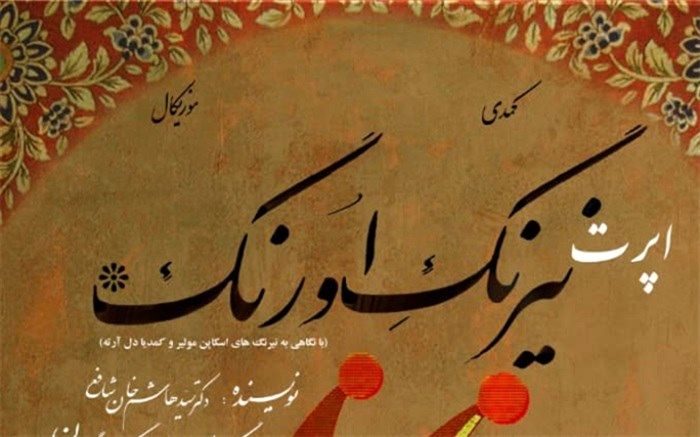 کمدی موزیکال
اپرت
نیرنگ اورنگ
(با نگاهی به نیرنگ های اسکاپن مولیر و کمدیا دل آرته)
نویسنده : دکتر سید هاشم خان شافعی